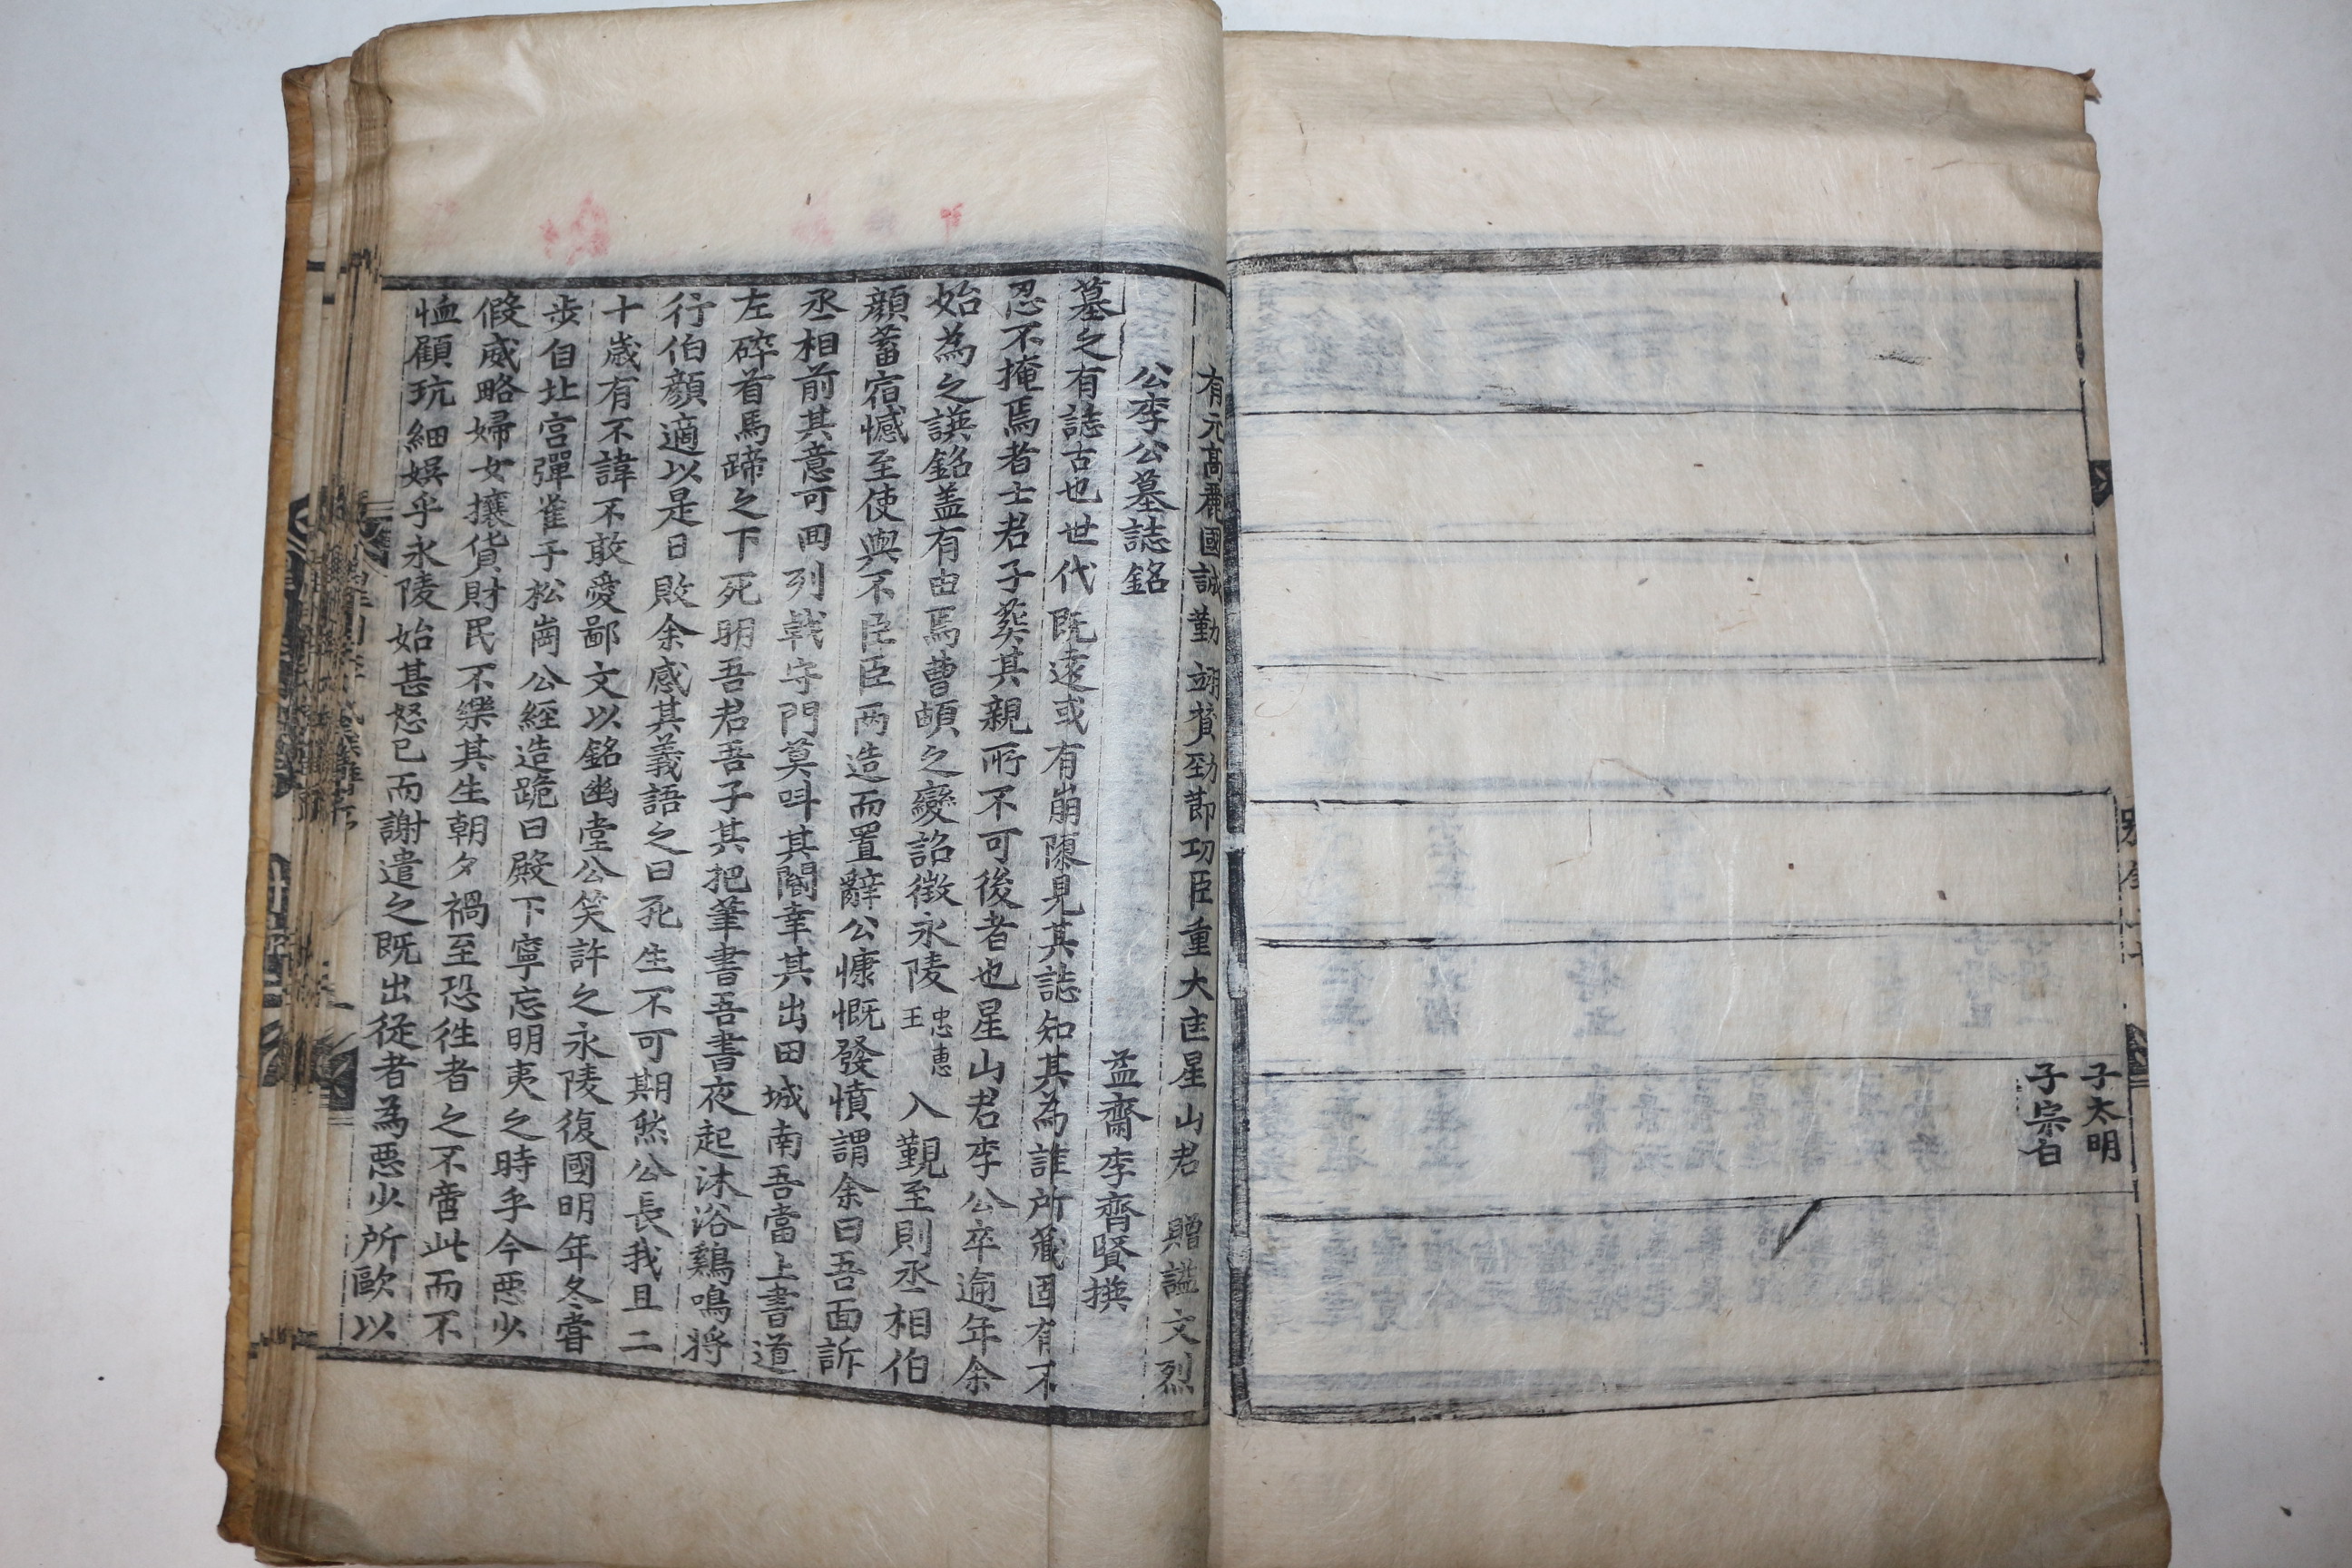 子太明
子宗白
有元高麗國誠勤翊賛勁節功臣重大匡星山君 贈謚文烈
公李公墓誌銘
益齋李齊賢撰
墓之有誌古也世代既遠或有崩陳見其誌知其為誰所藏固有不
忍不掩焉者士君子葬其親所不可後者也星山君李公卒逾年余
始為之譔銘盖有由焉曹頔之變詔徴永陵忠惠王入覲至則丞相伯
顔蓄宿憾至使與不臣臣两造而置辭公慷慨發憤謂余曰吾面訴
丞相前其意可回列戟守門莫呌其閽幸其出田城南吾當上書道
左碎首馬蹄之下死明吾君吾子其把筆書吾書夜起沐浴鷄鳴将
行伯顔適以是日敗余感其義語之曰死生不可期然公長我且二
十歳有不諱不敢愛鄙文以銘幽堂公笑許之永陵復國明年冬甞
步自北宮彈雀于松崗公經造跪曰殿下寧忘明夷之時乎今悪少
假威略婦女攘貨財民不樂其生朝夕禍至恐徃者之不啻此而不
恤顧玩細娯乎永陵始甚怒已而謝遣之既出從者為悪少所歐以